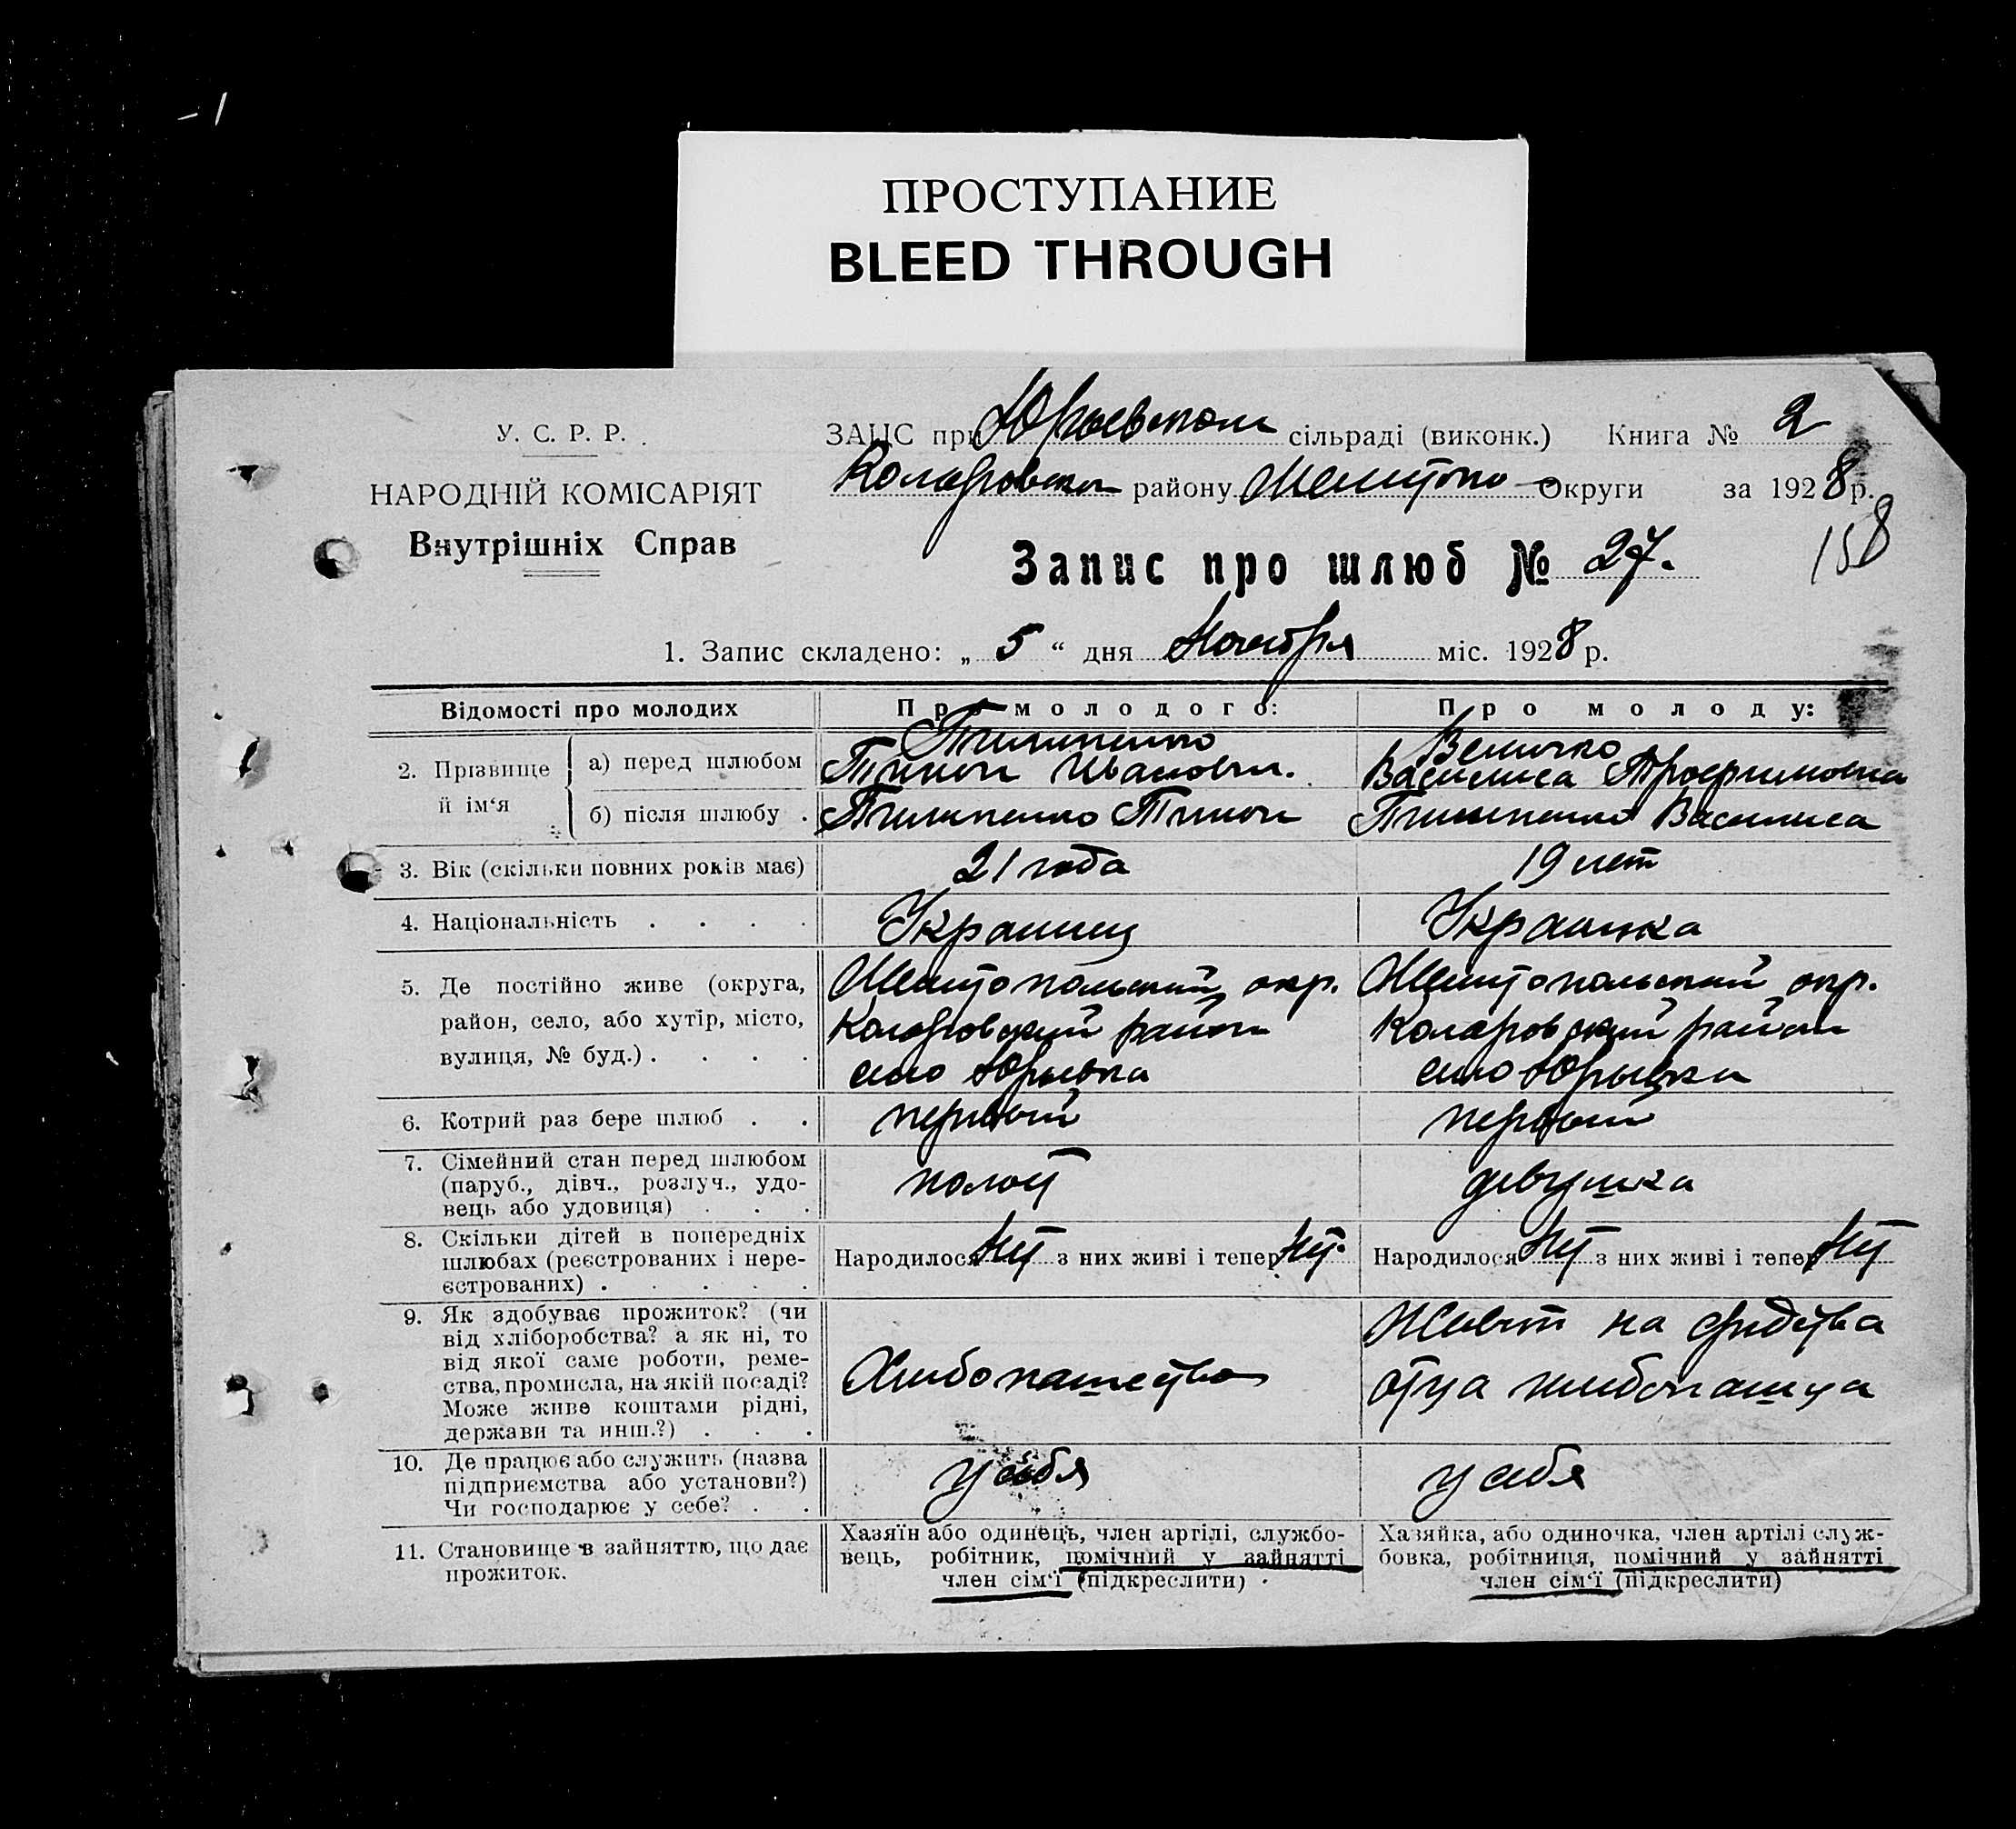 ПРОСТУПАНИЕ
BLEED THROUGH
У. С. Р. Р.
НАРОДНІЙ КОМІСАРІЯТ
Внутрішніх Справ
ЗАЦС при Юрьевском сільраді (виконк.) Книга № 2
Коларовском району Мелитопо- Округи за 1928 р.
158
Запис про шлюб № 27.
1. Запис складено: „ 5 “ дня Ноября міс. 1928 р.
Відомості про молодих
Про молодого:
Про молоду:
2. Прізвище й ім‘я
а) перед шлюбом
Пилипенко
Тимон Иванович.
Величко
Василиса Трофимовна
б) після шлюбу .
Пилипенко Тимон
Пилипенко Василиса
3. Вік (скільки повних років має)
21 года
19 лет
4. Національність . . . .
Украинец
Украинка
5. Де постійно живе (округа,
район, село, або хутір, місто,
вулиця, № буд.) . . . .
Мелитопольский окр.
Коларовский район
село Юрьевка
Мелитопольский окр.
Коларовский район
село Юрьевка
6. Котрий раз бере шлюб . .
первый
первый
7. Сімейний стан перед шлюбом
(паруб., дівч., розлуч., удо-
вець або удовиця) . . .
холост
девушка
8. Скільки дітей в попередніх
шлюбах (реєстрованих і нере-
єстрованих) . . . . .
Народилося Нет з них живі і тепер Нет.
Народилося Нет з них живі і тепер Нет
9. Як здобуває прожиток? (чи
від хліборобства? а як ні, то
від якої саме роботи, реме-
ства, промисла, на якій посаді?
Може живе коштами рідні,
держави та инш.?) . . .
Хлебопашество
Живет на средства
отца хлебопашца
10. Де працює або служить (назва
підприємства або установи?)
Чи господарює у себе? . .
у себя
у себя
11. Становище в зайняттю, що дає
прожиток.
Хазяїн або одинець, член артілі, службо-
вець, робітник, помічний у зайнятті
член сім‘ї (підкреслити) .
Хазяйка, або одиночка, член артілі служ-
бовка, робітниця, помічний у зайнятті
член сім‘ї (підкреслити)